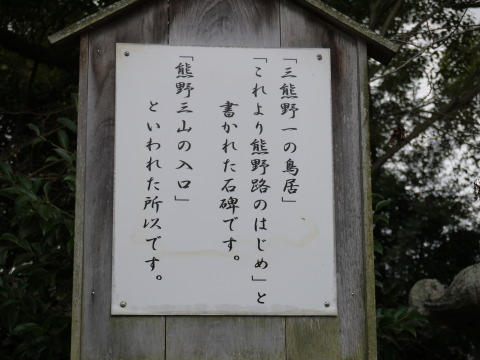 「三熊野一の鳥居」
「これより熊野路のはじめ」と
書かれた石碑です。
「熊野三山の入口」
といわれた所以です。